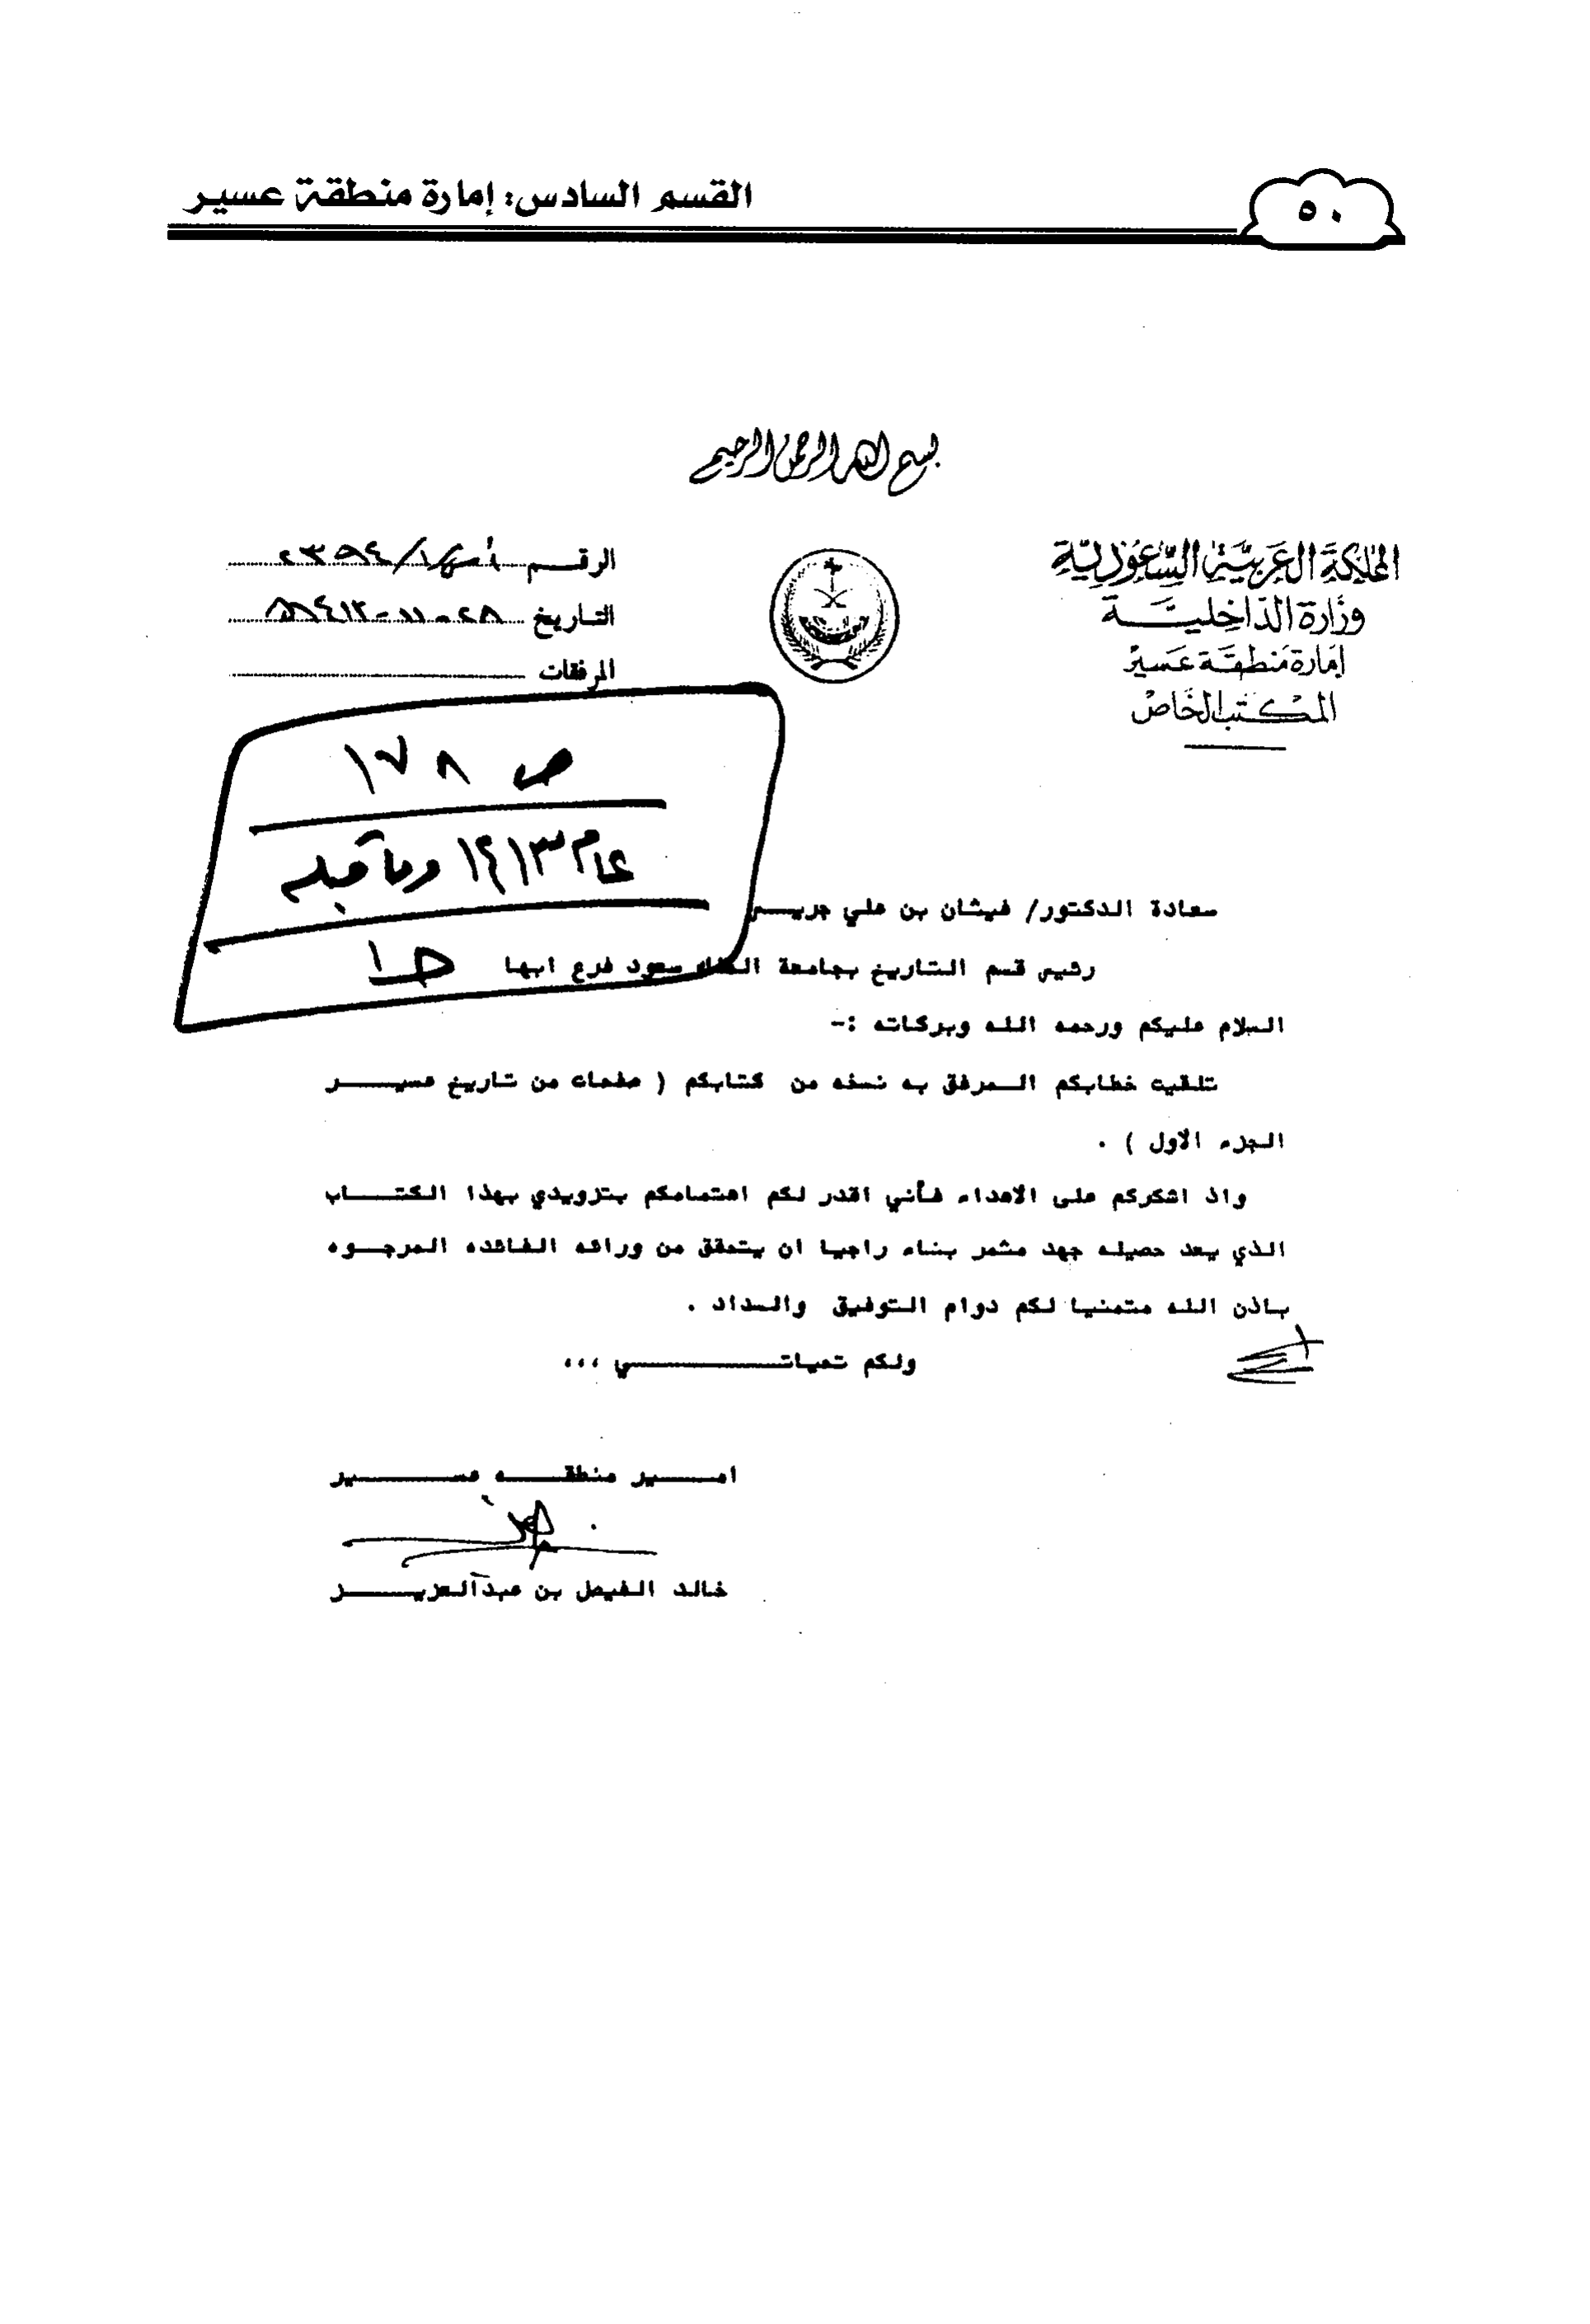 القسم السادس: إمارة منطقة عسير
٥٠
بسم الله الرحمن الرحيم
المملكة العربية السعودية
وزارة الداخلية
إمارة منطقة عسير
المكتب الخاص
الرقم
التاريخ ٢٨-١١-١٤١٢هـ
المرفقات
ص ١٧٨
عام ١٤١٣ وما قبله
سعادة الدكتور/ غيثان بن علي جريس
رئيس قسم التاريخ بجامعة الملك سعود فرع ابها
السلام عليكم ورحمه الله وبركاته :-
تلقيت خطابكم المرفق به نسخه من كتابكم ( صفحات من تاريخ عسير
الجزء الاول ) .
واذ اشكركم على الاهداء فأني اقدر لكم اهتمامكم بتزويدي بهذا الكتاب
الذي يعد حصيله جهد مثمر بناء راجيا ان يتحقق من ورائه الفائده المرجوه
باذن الله متمنيا لكم دوام التوفيق والسداد .
ولكم تحياتي ،،،
امير منطقه عسير
خالد الفيصل بن عبدالعزيز